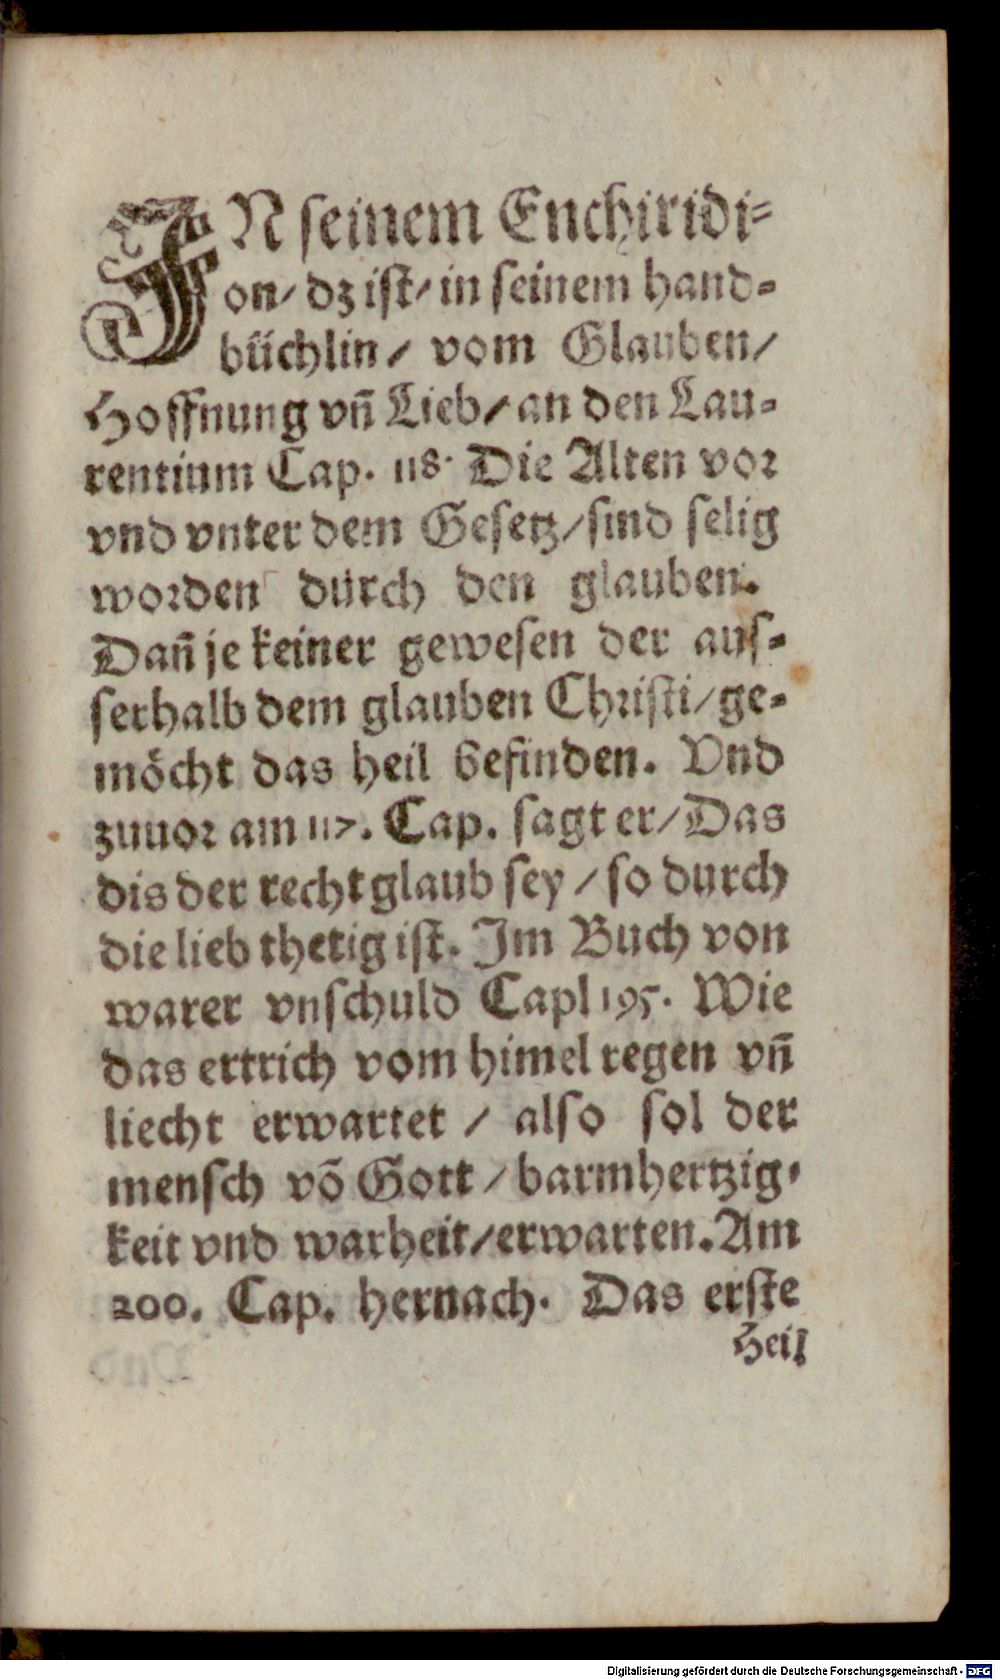 JN seinem Enchiridi-
on/ dz ist/ in seinem hand-
büchlin/ vom Glauben/
Hoffnung vñ Lieb/ an den Lau-
rentium Cap. 118. Die Alten vor
vnd vnter dem Gesetz/ sind selig
worden durch den glauben.
Dañ je keiner gewesen der aus-
serhalb dem glauben Christi/ ge-
möcht das heil befinden. Vnd
zuuor am 117. Cap. sagt er/ Das
dis der recht glaub sey/ so durch
die lieb thetig ist. Jm Buch von
warer vnschuld Capl 195. Wie
das ertrich vom himel regen vñ
liecht erwartet/ also sol der
mensch võ Gott/ barmhertzig-
keit vnd warheit/ erwarten. Am
200. Cap. hernach. Das erste
Heil
Digitalisierung gefördert durch die Deutsche Forschungsgemeinschaft - DFG